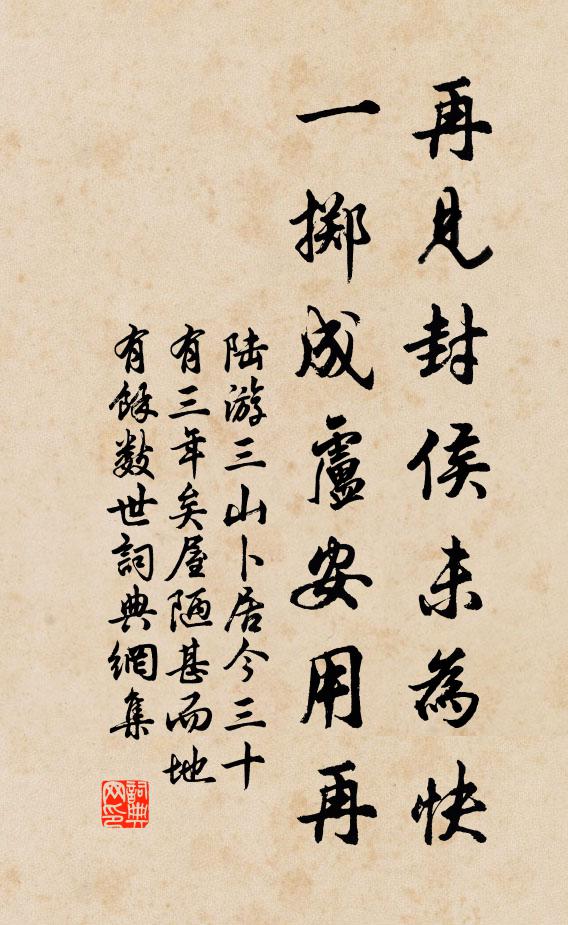 再見封侯未為快
一擲成盧安用再
陆游三山卜居今三十
有三年矣屋陋甚而地
有餘数世詞典網集
詞典网印